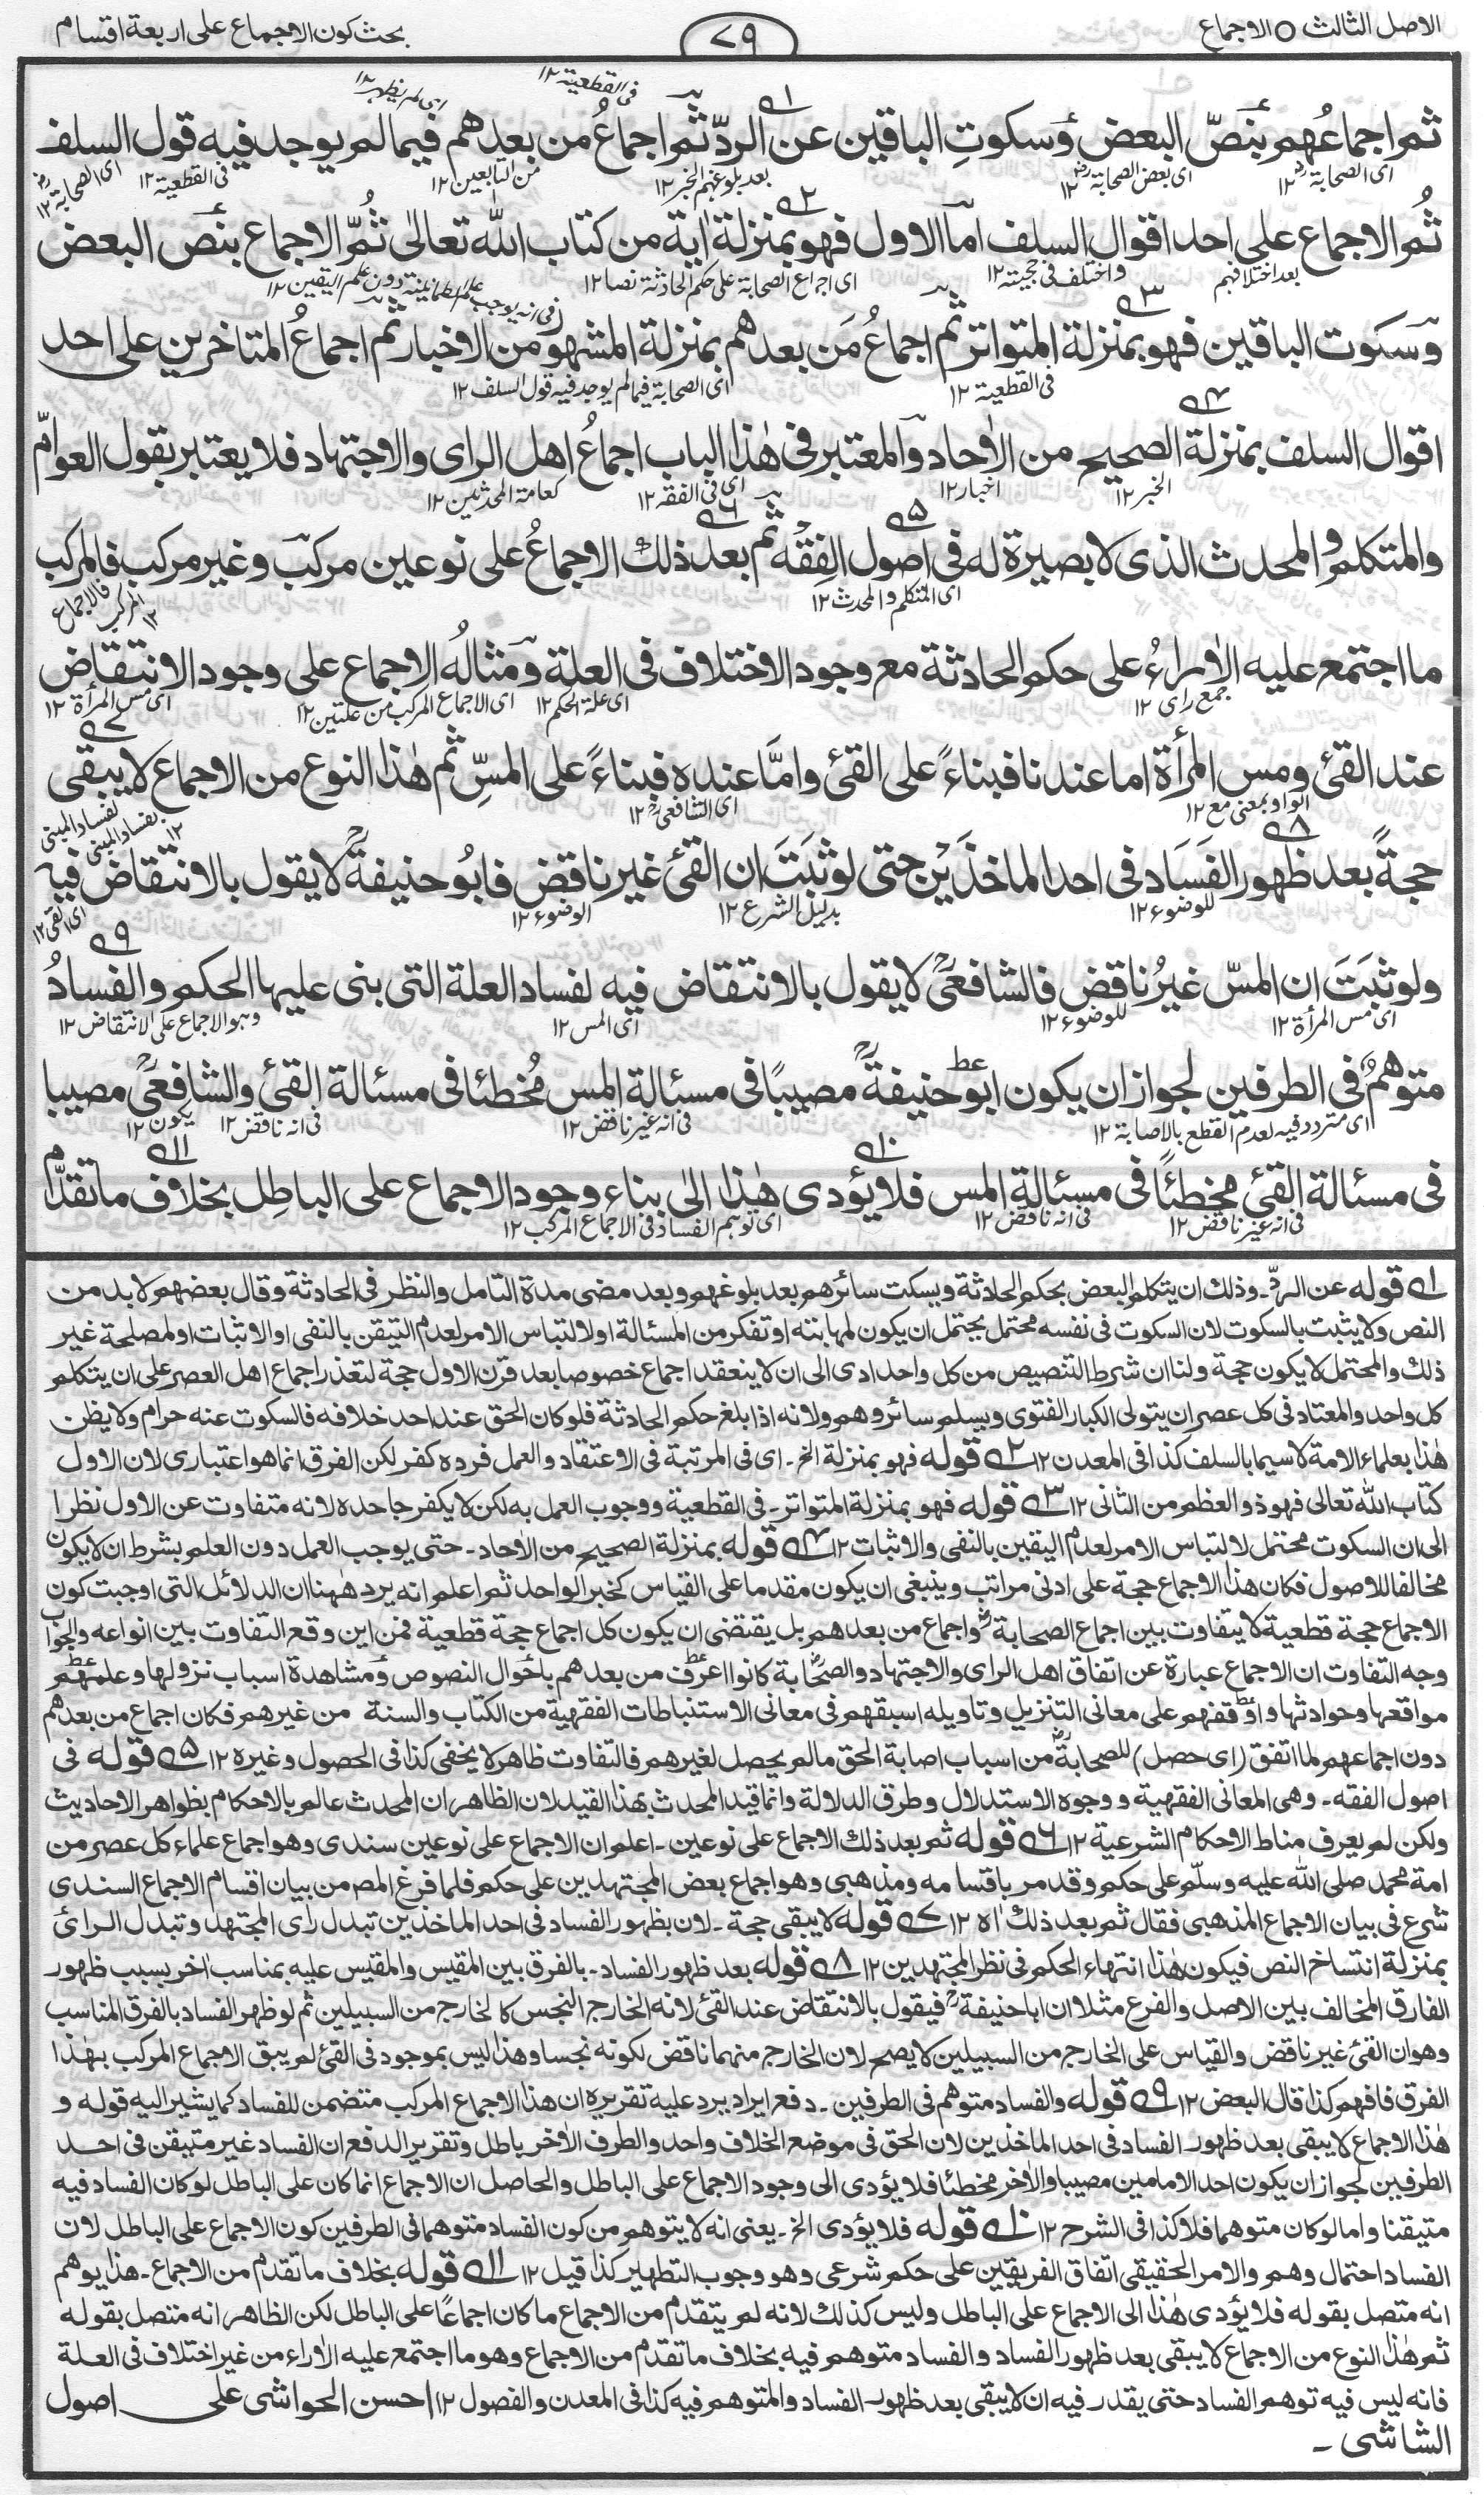 الاصل الثالث ○ الاجماع
٧٩
بحث كون الاجماع على اربعة اقسام
فى القطعية ١٢ اى لم يظهر ١٢
ثم اجماعُهم بنَصّ البعض وَسكوتِ الباقين عن الردّ ثم اجماعُ من بعدهم فيما لم يوجد فيه قول السلف
اى الصحابة رض ١٢ اى بعض الصحابة رض ١٢ بعد بلوغهم الخبر ١٢ من التابعين ١٢ فى القطعية ١٢ اى الصحابة رض ١٢
ثُم الاجماع على احد اقوال السلف امّا الاول فهو بمنزلة اٰية من كتاب اللّٰه تعالىٰ ثُمَّ الاجماع بنَص البعض
بعد اختلافهم واختلف فى حجيته ١٢ اى اجماع الصحابة على حكم الحادثة نصا ١٢ فى انه يوجب علم الطمانينة دون علم اليقين ١٢
وَسكوت الباقين فهو بمنزلة المتواتر ثم اجماعُ مَن بعدهم بمنزلة المشهور من الاخبار ثم اجماعُ المتاخرين على احد
فى القطعية ١٢ اى الصحابة فيما لم يوجد فيه قول السلف ١٢
اقوال السلف بمنزلة الصحيح من الاٰحاد والمعتبر فى هٰذا الباب اجماعُ اهل الراى والاجتهاد فلا يعتبر بقول العوامّ
الخبر ١٢ اخبار ١٢ اى فى الفقه ١٢ كعامة المحدثين ١٢
والمتكلم والمحدث الذى لا بصيرة له فى اصول الفِقْه ثم بعد ذلك الاجماعُ على نوعين مركب وغير مركب فالمركب
اى المتكلم والمحدث ١٢ فالاجماع المركب ١٢
ما اجتمع عليه الاٰراءُ على حكم الحادثة مع وجود الاختلاف فى العلة ومثالُه الاجماع على وجود الانتقاض
جمع راى ١٢ اى علة الحكم ١٢ اى الاجماع المركب من علتين ١٢ اى مس المرأة ١٢
عند القئ ومس المرأة اما عندنا فبناءً على القئ وامَّا عنده فبناءً على المسِّ ثم هٰذا النوع من الاجماع لا يبقى
الواو بمعنى مع ١٢ اى الشافعىؒ ١٢ لفساد المبنى ١٢
حجةً بعد ظهور الفَسَاد فى احد الماخذَيْن حتى لو ثبَتَ ان القئ غير ناقض فابُو حنيفةؒ لا يقول بالانتقاض فيه
للوضوء ١٢ بدليل الشرع ١٢ الوضوء ١٢ اى القئ ١٢
ولو ثبَتَ ان المسّ غيرُ ناقض فالشافعىؒ لا يقول بالانتقاض فيه لفساد العلة التى بنى عليها الحكم والفسادُ
اى مس المرأة ١٢ للوضوء ١٢ اى المس ١٢ وهو الاجماع على الانتقاض ١٢
متوهمٌ فى الطرفين لجواز ان يكون ابو حنيفةؒ مصيبًا فى مسئالة المس مُخطئا فى مسئالة القئ والشافعىؒ مصيبا
اى متردد فيه لعدم القطع بالاصابة ١٢ فى انه غير ناقض ١٢ فى انه ناقض ١٢ يكون ١٢
فى مسئالة القئ مخطئًا فى مسئالة المس فلا يؤدى هٰذا الىٰ بناء وجود الاجماع على الباطِل بخلاف ما تقدَّم
فى انه غير ناقض ١٢ فى انه ناقض ١٢ اى توهم الفساد فى الاجماع المركب ١٢
١ قوله عن الردّ۔ وذلك ان يتكلم البعض بحكم الحادثة ويسكت سائرهم بعد بلوغهم وبعد مضى مدة التامل والنظر فى الحادثة وقال بعضهم لا بد من
النص ولا يثبت بالسكوت لان السكوت فى نفسه محتمل يحتمل ان يكون لمهابته او تفكر من المسئالة او لالتباس الامر لعدم التيقن بالنفى او الاثبات او لمصلحة غير
ذلك والمحتمل لا يكون حجة ولنا ان شرط التنصيص من كل واحد ادى الى ان لا ينعقد اجماع خصوصا بعد قرن الاول حجة لتعذر اجماع اهل العصر على ان يتكلم
كل واحد والمعتاد فى كل عصر ان يتولى الكبار الفتوى ويسلم سائرهم ولانه اذا بلغ حكم الحادثة فلو كان الحق عند احد خلافه فالسكوت عنه حرام ولا يظن
هٰذا بعلماء الامة لا سيما بالسلف كذا فى المعدن ١٢ ٢ قوله فهو بمنزلة الخ۔ اى فى المرتبة فى الاعتقاد والعمل فرده كفر لكن الفرق انما هو اعتبارى لان الاول
كتاب اللّٰه تعالى فهو ذو العظم من الثانى ١٢ ٣ قوله فهو بمنزلة المتواتر۔ فى القطعية ووجوب العمل به لكن لا يكفر جاحده لانه متفاوت عن الاول نظرا
الى ان السكوت محتمل لالتباس الامر لعدم اليقين بالنفى والاثبات ١٢ ٤ قوله بمنزلة الصحيح من الاٰحاد۔ حتى يوجب العمل دون العلم بشرط ان لا يكون
مخالفا للاصول فكان هذا الاجماع حجة على ادنى مراتب وينبغى ان يكون مقدما على القياس كخبر الواحد ثم اعلم انه يرد هٰهنا ان الدلائل التى اوجبت كون
الاجماع حجة قطعية لا يتفاوت بين اجماع الصحابةؓ واجماع من بعدهم بل يقتضى ان يكون كل اجماع حجة قطعية فمن اين وقع التفاوت بين انواعه والجواب
وجه التفاوت ان الاجماع عبارة عن اتفاق اهل الراى والاجتهاد والصحابة كانوا اعرف من بعدهم باحوال النصوص ومشاهدة اسباب نزولها وعلمهم
مواقعها وحوادثها واوقفهم على معانى التنزيل وتاويله اسبقهم فى معانى الاستنباطات الفقهية من الكتاب والسنة من غيرهم فكان اجماع من بعدهم
دون اجماعهم لما اتفق (اى حصل) للصحابةؓ من اسباب اصابة الحق ما لم يحصل لغيرهم فالتفاوت ظاهر لا يخفى كذا فى الحصول وغيره ١٢ ٥ قوله فى
اصول الفقه۔ وهى المعانى الفقهية ووجوه الاستدلال وطرق الدلالة وانما قيد المحدث بهذا القيد لان الظاهر ان المحدث عالم بالاحكام بظواهر الاحاديث
ولكن لم يعرف مناط الاحكام الشرعية ١٢ ٦ قوله ثم بعد ذلك الاجماع على نوعين۔ اعلم ان الاجماع على نوعين سندى وهو اجماع علماء كل عصر من
امة محمد صلى اللّٰه عليه وسلّم على حكم وقد مر باقسامه ومذهبى وهو اجماع بعض المجتهدين على حكم فلما فرغ المص من بيان اقسام الاجماع السندى
شرع فى بيان الاجماع المذهبى فقال ثم بعد ذلك اٰه ١٢ ٧ قوله لا يبقى حجة۔ لان بظهور الفساد فى احد الماخذين تبدل راى المجتهد وتبدل الرائ
بمنزلة انتساخ النص فيكون هٰذا انتهاء الحكم فى نظر المجتهدين ١٢ ٨ قوله بعد ظهور الفساد۔ بالفرق بين المقيس والمقيس عليه بمناسب اٰخر بسبب ظهور
الفارق المخالف بين الاصل والفرع مثلا ان ابا حنيفةؒ فيقول بالانتقاض عند القئ لانه الخارج النجس كالخارج من السبيلين ثم لو ظهر الفساد بالفرق المناسب
وهو ان القئ غير ناقض والقياس على الخارج من السبيلين لا يصح لان الخارج منهما ناقض لكونه نجسا وهذا ليس بموجود فى القئ لم يبق الاجماع المركب بهٰذا
الفرق فافهم كذا قال البعض ١٢ ٩ قوله والفساد متوهم فى الطرفين۔ دفع ايراد يرد عليه تقريره ان هذا الاجماع المركب متضمن للفساد كما يشير اليه قوله و
هٰذا الاجماع لا يبقى بعد ظهور الفساد فى احد الماخذين لان الحق فى موضع الخلاف واحد والطرف الاٰخر باطل وتقرير الدفع ان الفساد غير متيقن فى احد
الطرفين لجواز ان يكون احد الامامين مصيبا والاٰخر مخطئا فلا يؤدى الى وجود الاجماع على الباطل والحاصل ان الاجماع انما كان على الباطل لو كان الفساد فيه
متيقنا واما لو كان متوهما فلا كذا فى الشرح ١٢ ١٠ قوله فلا يؤدى الخ۔ يعنى انه لا يتوهم من كون الفساد متوهما فى الطرفين كون الاجماع على الباطل لان
الفساد احتمال وهم والامر الحقيقى اتفاق الفريقين على حكم شرعى وهو وجوب التطهير كذا قيل ١٢ ١١ قوله بخلاف ما تقدم من الاجماع۔ هذا يوهم
انه متصل بقوله فلا يؤدى هٰذا الى الاجماع على الباطل وليس كذلك لانه لم يتقدم من الاجماع ما كان اجماعًا على الباطل لكن الظاهر انه متصل بقوله
ثم هٰذا النوع من الاجماع لا يبقى بعد ظهور الفساد والفساد متوهم فيه بخلاف ما تقدم من الاجماع وهو ما اجتمع عليه الاٰراء من غير اختلاف فى العلة
فانه ليس فيه توهم الفساد حتى يقدر فيه ان لا يبقى بعد ظهور الفساد والمتوهم فيه كذا فى المعدن والفصول ١٢ احسن الحواشى على اصول
الشاشى ۔